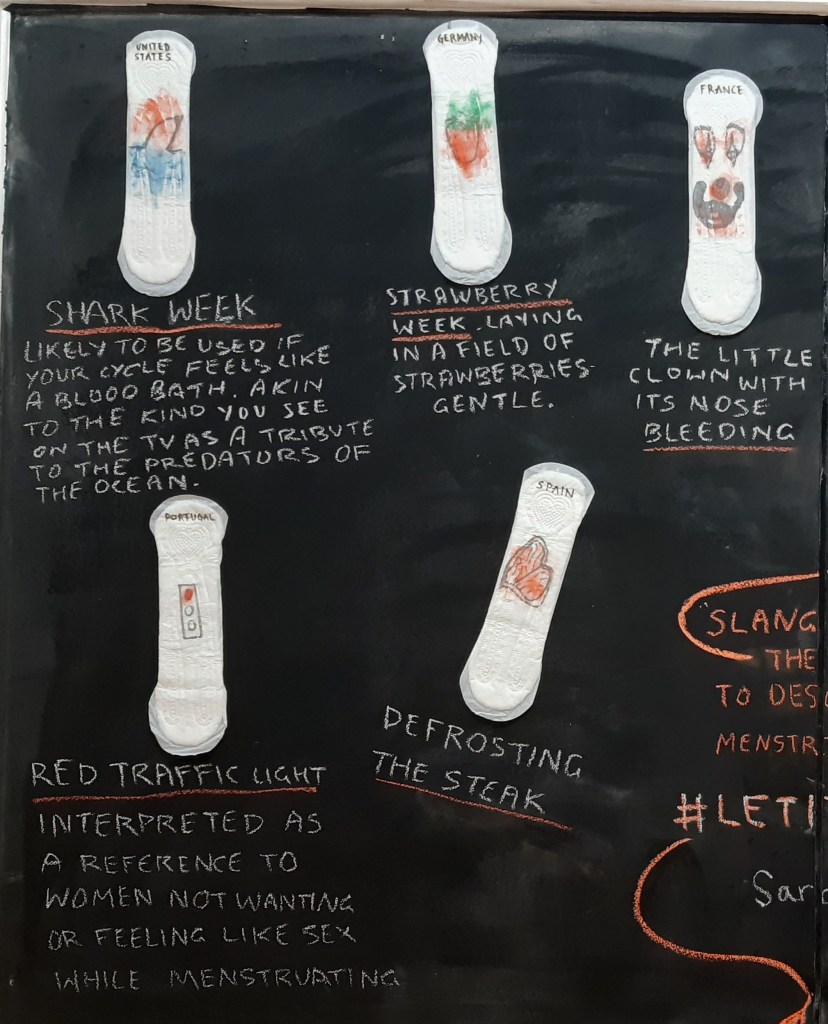 UNITED
STATES
SHARK WEEK
LIKELY TO BE USED IF
YOUR CYCLE FEELS LIKE
A BLOOD BATH. AKIN
TO THE KIND YOU SEE
ON THE TV AS A TRIBUTE
TO THE PREDATORS OF
THE OCEAN.
GERMANY
STRAWBERRY
WEEK. LAYING
IN A FIELD OF
STRAWBERRIES-
GENTLE.
FRANCE
THE LITTLE
CLOWN WITH
ITS NOSE
BLEEDING
PORTUGAL
RED TRAFFIC LIGHT
INTERPRETED AS
A REFERENCE TO
WOMEN NOT WANTING
OR FEELING LIKE SEX
WHILE MENSTRUATING
SPAIN
DEFROSTING
THE STEAK
"SLANG
THE
TO DES
MENSTR
#LETI
Sar